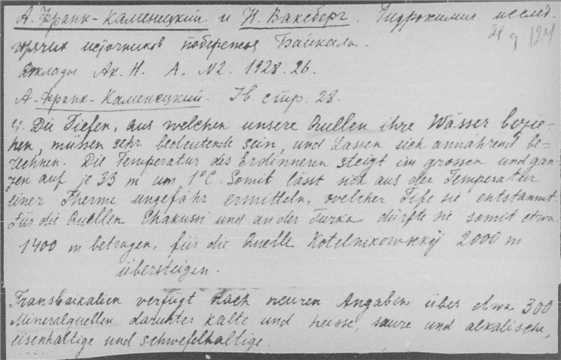 А. Франк-Каменецкий и Н. Ваксберг. Гидрохимия исслед.
горячих источников побережья Байкала.
Доклады Ак. Н. А. N2. 1928. 26.
А. Франк-Каменецкий. стр. 28.
Die Tiefen, aus welchen unsere Quellen ihre Wässer bezie-
hen, müssen sehr bedeutende sein, und lassen sich annähernd be-
rechnen. Die Temperatur des Erdinneren steigt im grossen und gan-
zen auf je 33 m um 1°C. Somit lässt sich aus der Temperatur
einer Therme ungefähr ermitteln, welcher Tife sie entstammt.
Für die Quellen Chakussi und an der Turka dürfte sie somit etwa
1400 m betragen, für die Quelle Kotelnikowskij 2000 m
übersteigen.
Transbaikalien verfügt nach neuren Angaben über etwa 300
Mineralquellen darunter kalte und heisse, saure und alkalische,
eisenhaltige und schwefelhaltige.